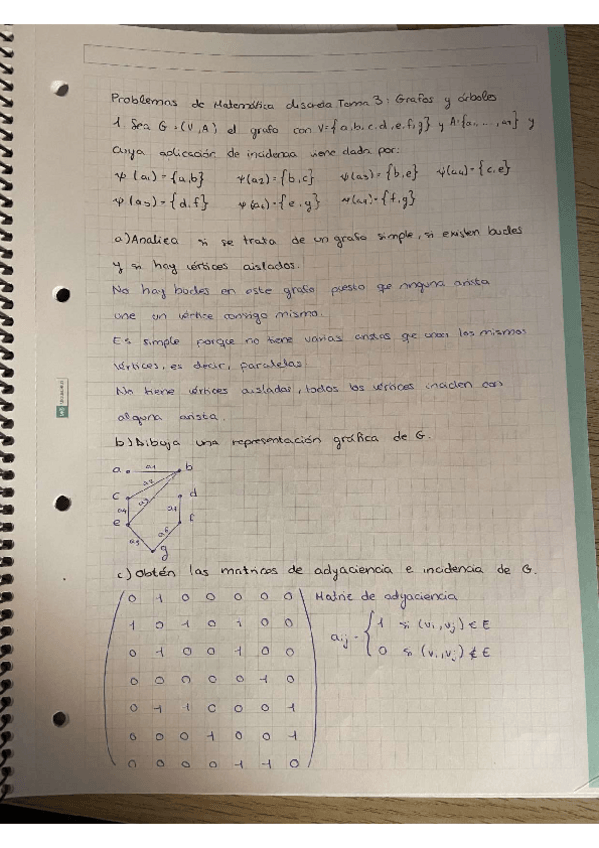 Problemas de Matemática discreta Tema 3: Grafos y árboles
1. Sea G=(V,A) el grafo con V={a,b,c,d,e,f,g} y A={a1,...,a7} y
cuya aplicación de incidencia viene dada por:
ψ(a1)={a,b} ψ(a2)={b,c} ψ(a3)={b,e} ψ(a4)={c,e}
ψ(a5)={d,f} ψ(a6)={e,g} ψ(a7)={f,g}
a) Analiza si se trata de un grafo simple, si existen bucles
y si hay vértices aislados.
No hay bucles en este grafo puesto que ninguna arista
une un vértice consigo mismo.
Es simple porque no tiene varias aristas que unan los mismos
vértices, es decir, paralelas
No tiene vértices aislados, todos los vértices inciden con
alguna arista.
b) Dibuja una representación gráfica de G.
a a1 b
a2
c a3 d
a4
e f
g
c) Obtén las matrices de adyaciencia e incidencia de G.
0 1 0 0 0 0 0 Matriz de adyaciencia
1 0 1 0 1 0 0 aij = 1 si (vi,vj) ∈ E
0 1 0 0 1 0 0 0 si (vi,vj) ∉ E
0 0 0 0 0 1 0
0 1 1 0 0 0 1
0 0 0 1 0 0 1
0 0 0 0 1 1 0